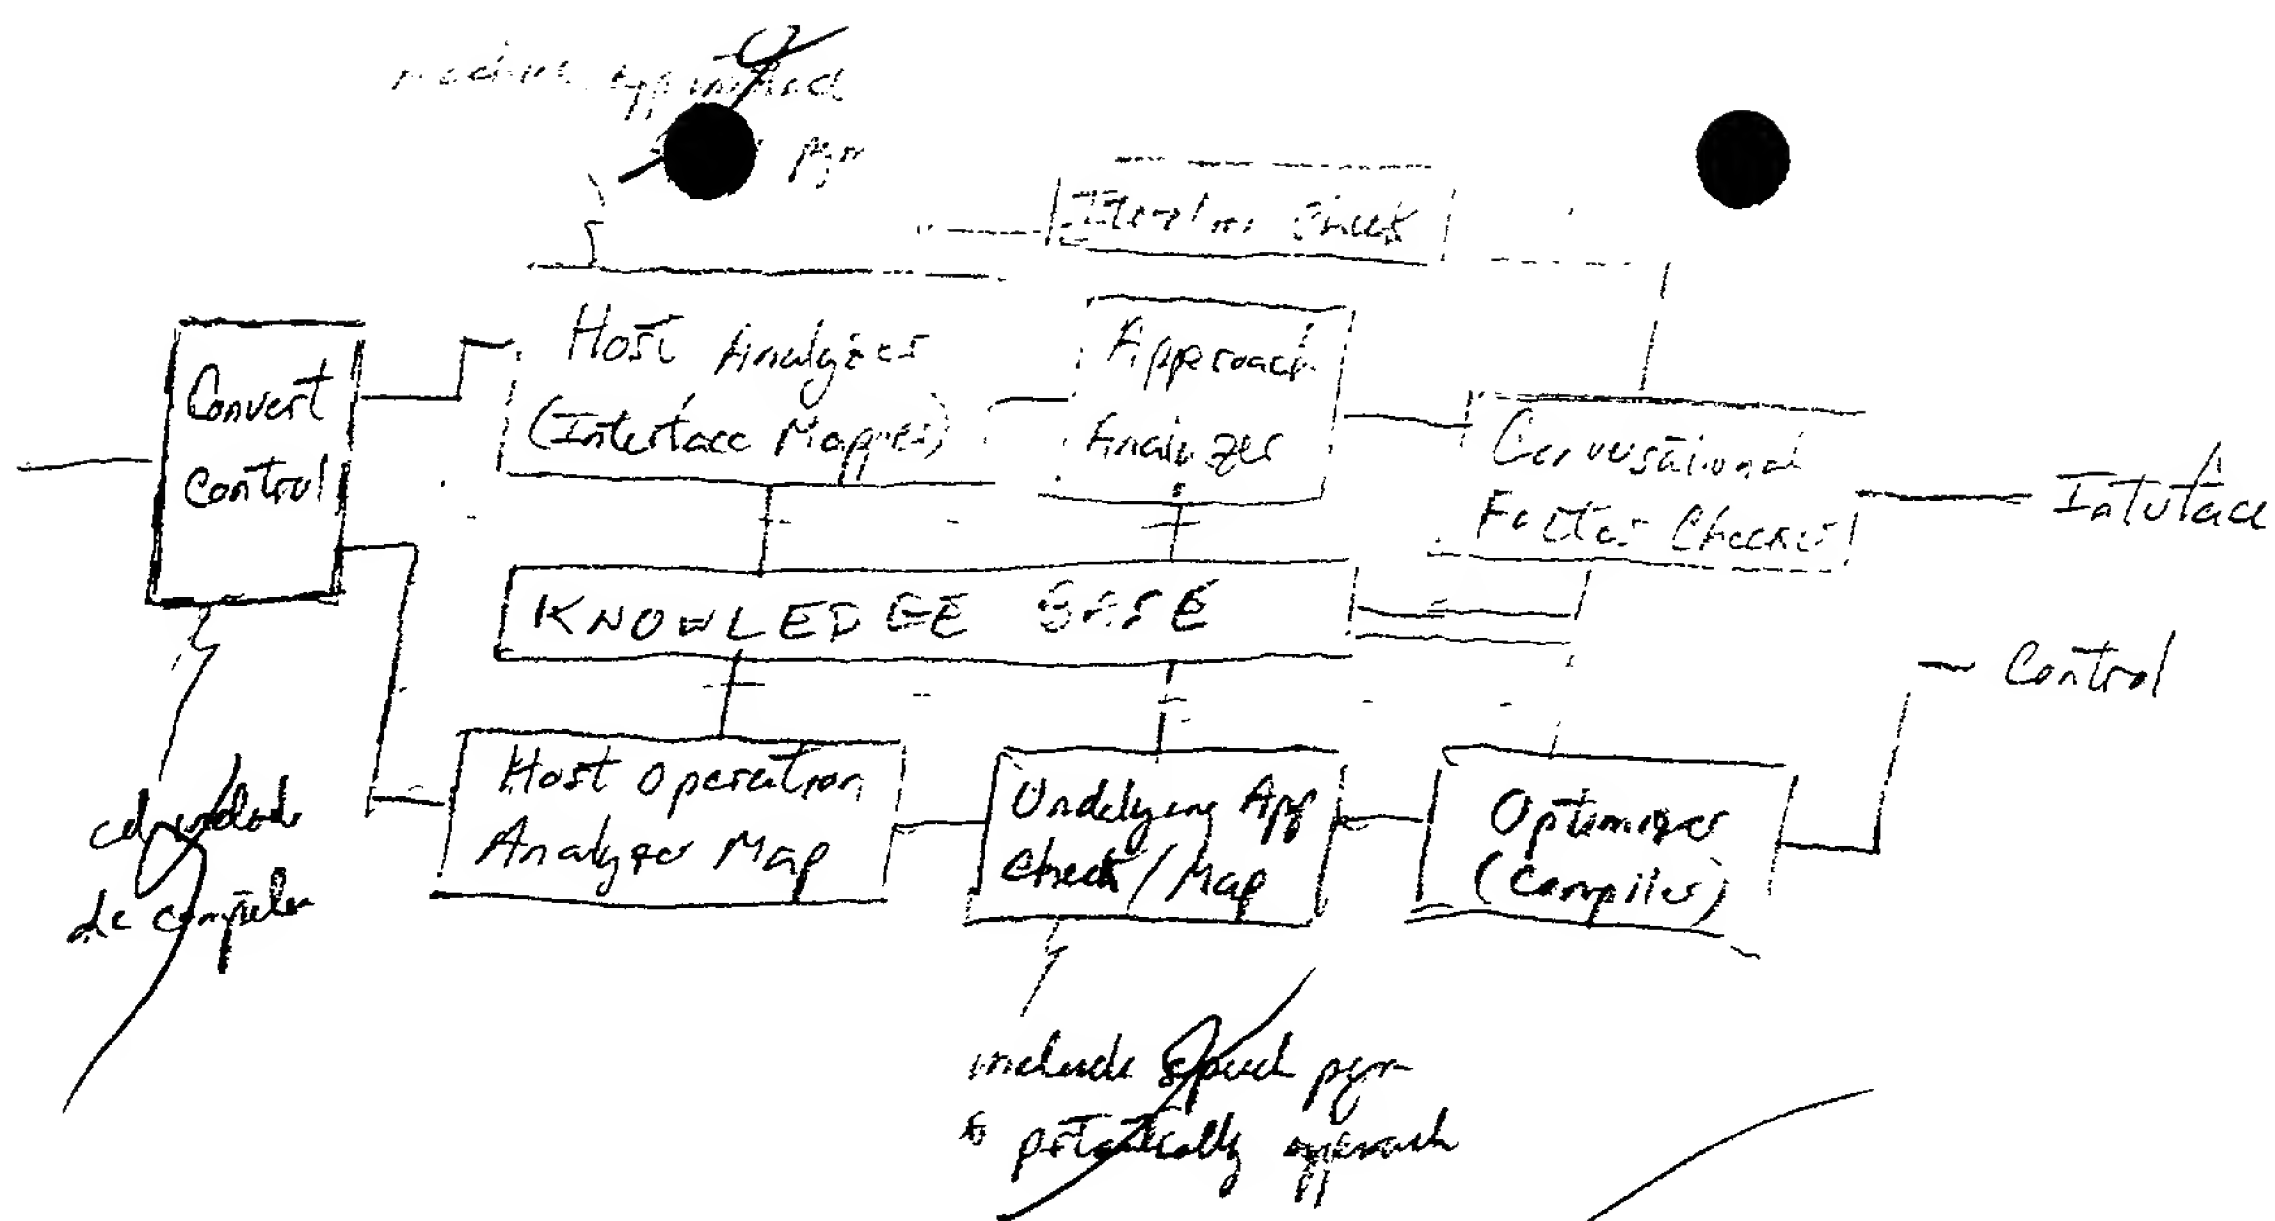 pgm
Check
Host Analyzer
(Interface Mapper)
Approach
Analyzer
Convert
Control
Conversational
Factor Checker
Interface
KNOWLEDGE BASE
Control
Host Operation
Analyzer Map
Underlying App
Check/Map
Optimizer
(Compiler)
de compiler
include speech pgm
& potentially approach